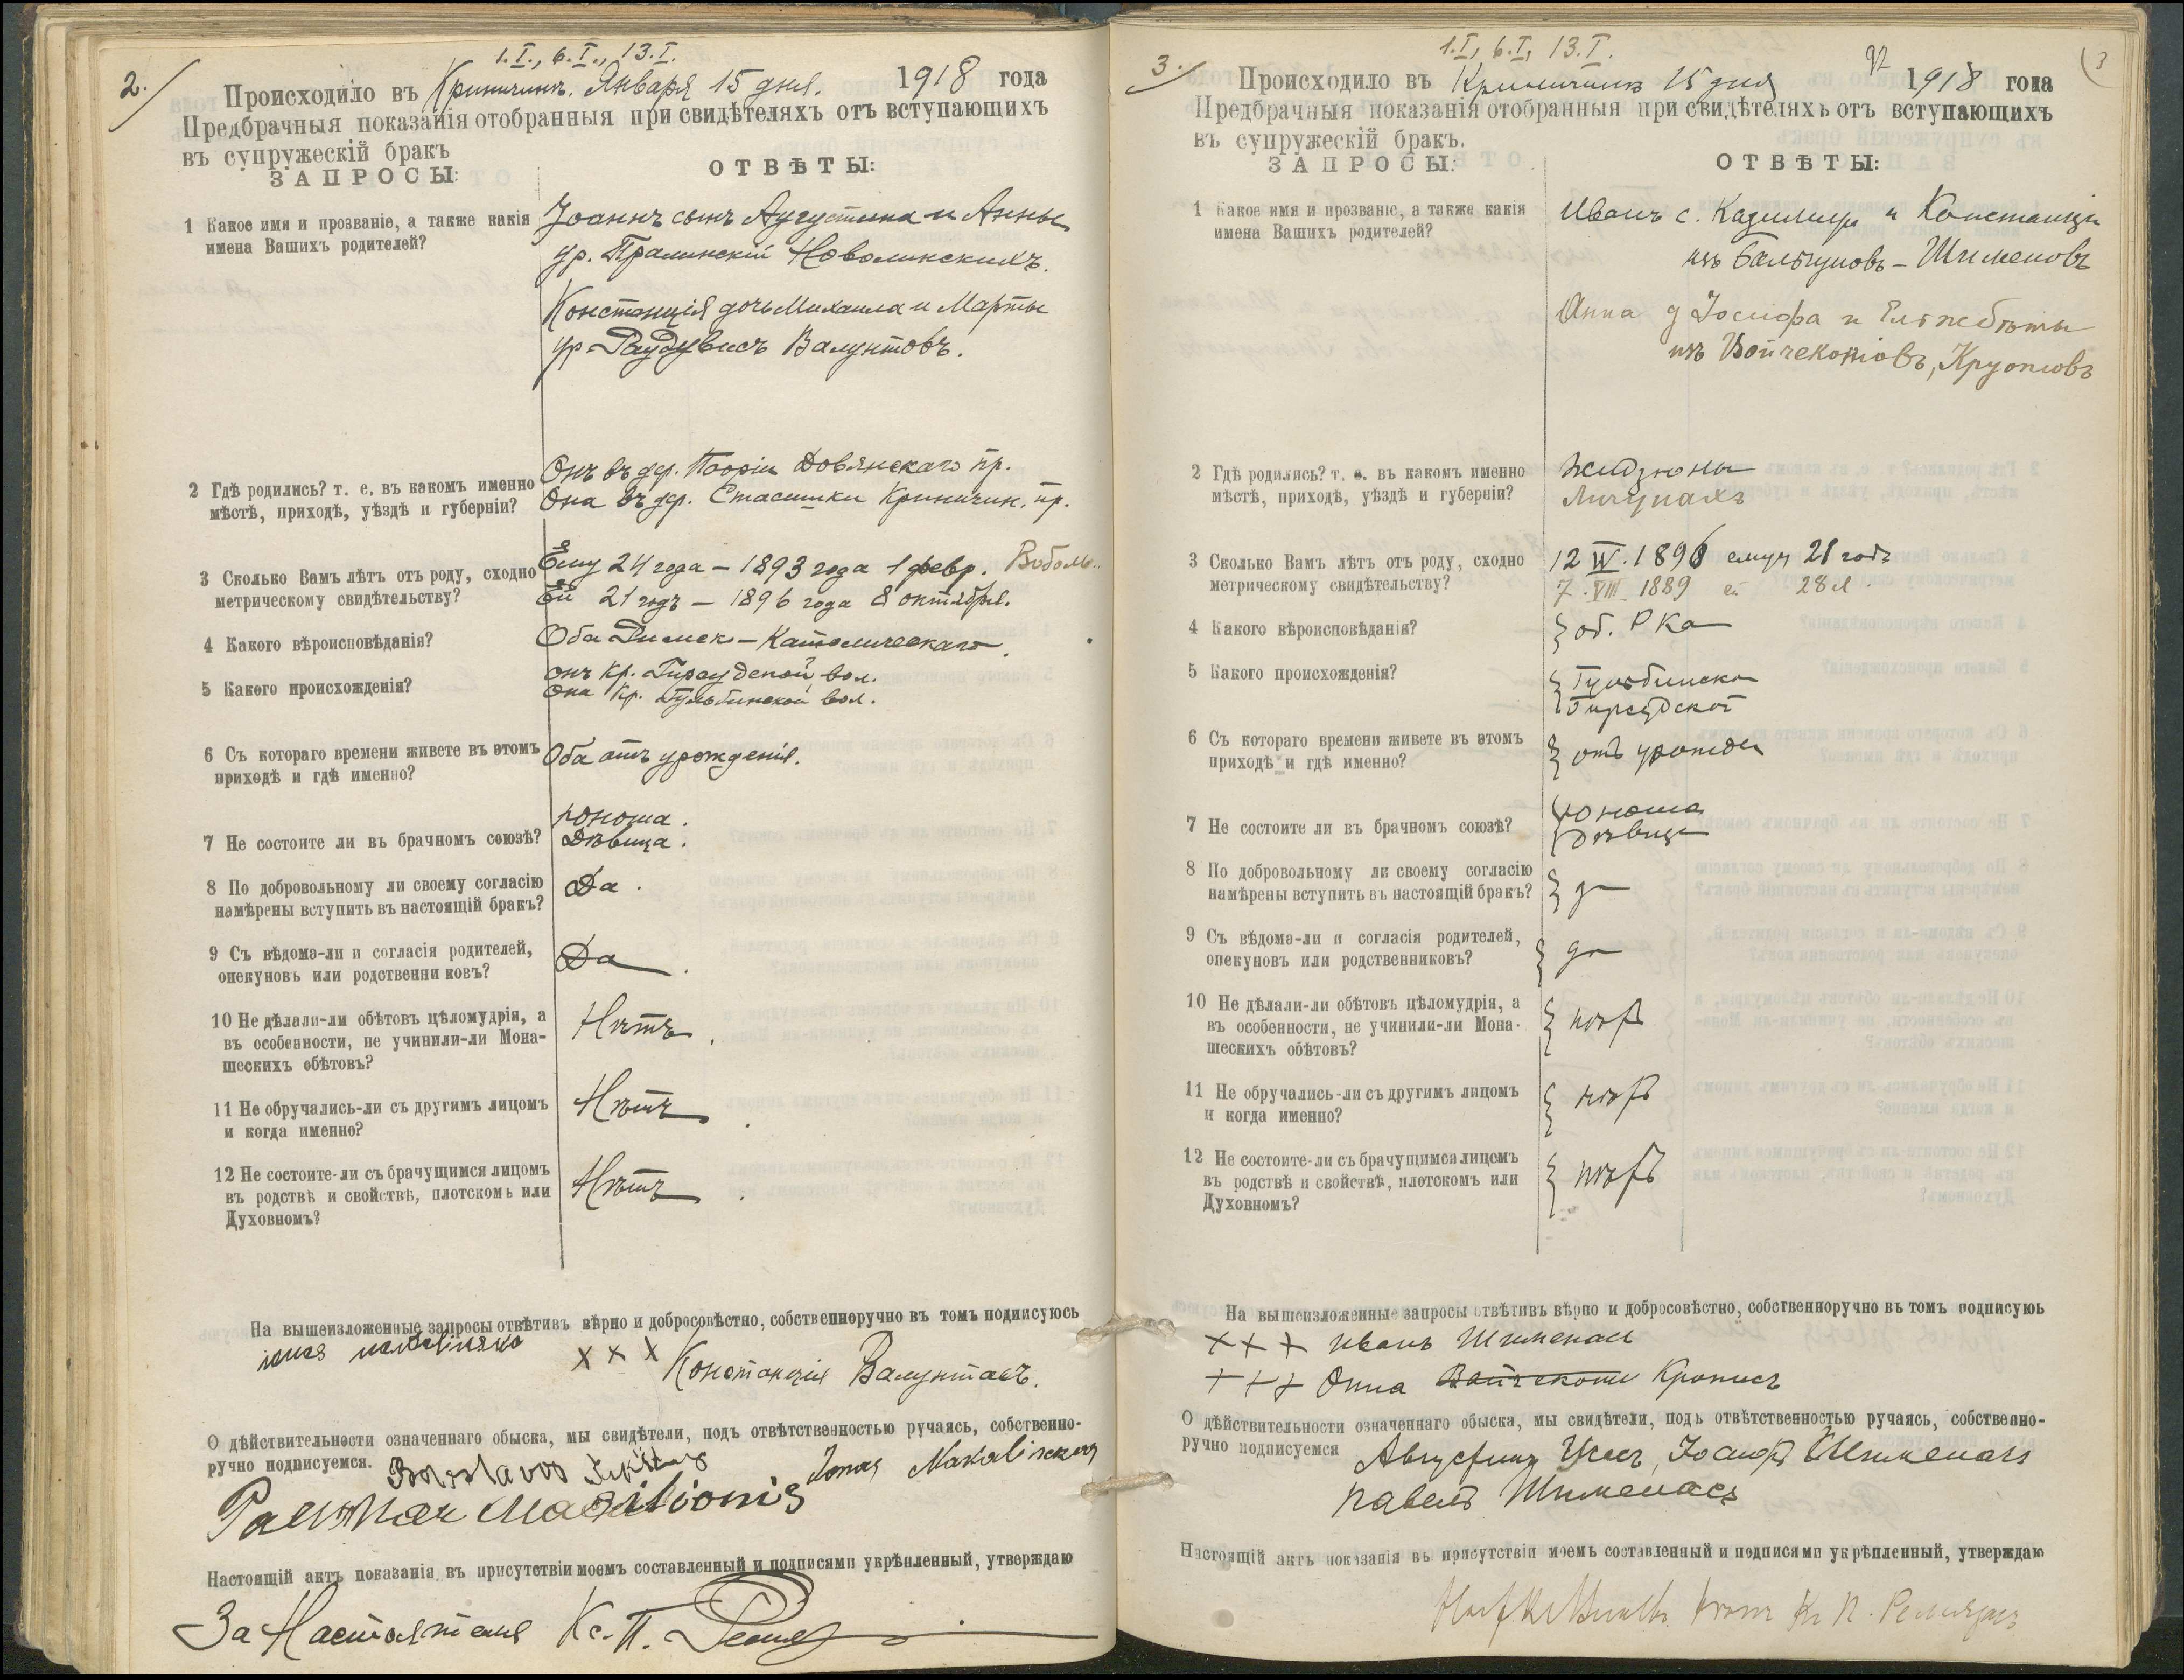 2.
1.I., 6.I., 13.I.
Происходило въ Криничинъ. Января 15 дня. 1918 года
Предбрачныя показанія отобранныя при свидѣтеляхъ отъ вступающихъ
въ супружескій бракъ
ЗАПРОСЫ:
ОТВѢТЫ:
1 Какое имя и прозваніе, а также какія
имена Вашихъ родителей?
Іоаннъ сынъ Августина и Анны
ур. Новолинскихъ.
Констанція дочь Михаила и Марты
ур Валунтовъ.
2 Гдѣ родились? т. е. въ какомъ именно
мѣстѣ, приходѣ, уѣздѣ и губерніи?
Онъ въ дер. Довянскаго пр.
Она въ дер. Сташишки Криничин. пр.
3 Сколько Вамъ лѣтъ отъ роду, сходно
метрическому свидѣтельству?
Ему 24 года – 1893 года 1 февр.
Ей 21 годъ – 1896 года 8 октября.
4 Какого вѣроисповѣданія?
Оба Римско-Католическаго.
5 Какого происхожденія?
онъ кр. Гирсудской вол.
она кр. Гульбинской вол.
6 Съ котораго времени живете въ этомъ
приходѣ и гдѣ именно?
Оба отъ урожденія.
7 Не состоите ли въ брачномъ союзѣ?
Юноша.
Дѣвица.
8 По добровольному ли своему согласію
намѣрены вступить въ настоящій бракъ?
Да.
9 Съ вѣдома-ли и согласія родителей,
опекуновъ или родственни ковъ?
Да.
10 Не дѣлали-ли обѣтовъ цѣломудрія, а
въ особенности, не учинили-ли Мона-
шескихъ обѣтовъ?
Нѣтъ.
11 Не обручались-ли съ другимъ лицомъ
и когда именно?
Нѣтъ.
12 Не состоите-ли съ брачущимся лицомъ
въ родствѣ и свойствѣ, плотскомъ или
Духовномъ?
Нѣтъ.
На вышеизложенные запросы отвѣтивъ вѣрно и добросовѣстно, собственноручно въ томъ подписуюсь
x x x Констанція Валунтасъ.
О дѣйствительности означеннаго обыска, мы свидѣтели, подъ отвѣтственностью ручаясь, собственно-
ручно подписуемся.
Настоящій актъ показанія въ присутствіи моемъ составленный и подписями укрѣпленный, утверждаю
За Настоятеля Кс. П.
3.
1.I, 6.I, 13.I.
3
Происходило въ Криничинъ 15 дня 1918 года
Предбрачныя показанія отобранныя при свидѣтеляхъ отъ вступающихъ
въ супружескій бракъ.
ЗАПРОСЫ:
ОТВѢТЫ:
1 Какое имя и прозваніе, а также какія
имена Вашихъ родителей?
Иванъ с. Казимира и Констанціи
изъ Бальчуновъ – Шименовъ
Анна д Іосифа и Ельжбѣты
изъ
2 Гдѣ родились? т. е. въ какомъ именно
мѣстѣ, приходѣ, уѣздѣ и губерніи?
3 Сколько Вамъ лѣтъ отъ роду, сходно
метрическому свидѣтельству?
12 IV. 1896 ему 21 годъ
7. VIII 1889 ей 28 л.
4 Какого вѣроисповѣданія?
об. Р Ка
5 Какого происхожденія?
Гульбинско
Гирсудской
6 Съ котораго времени живете въ этомъ
приходѣ и гдѣ именно?
отъ урожден
7 Не состоите ли въ брачномъ союзѣ?
юноша
дѣвица
8 По добровольному ли своему согласію
намѣрены вступить въ настоящій бракъ?
да
9 Съ вѣдома-ли и согласія родителей,
опекуновъ или родственниковъ?
да
10 Не дѣлали-ли обѣтовъ цѣломудрія, а
въ особенности, не учинили-ли Мона-
шескихъ обѣтовъ?
нѣтъ
11 Не обручались-ли съ другимъ лицомъ
и когда именно?
нѣтъ
12 Не состоите-ли съ брачущимся лицомъ
въ родствѣ и свойствѣ, плотскомъ или
Духовномъ?
нѣтъ
На вышеизложенные запросы отвѣтивъ вѣрно и добросовѣстно, собственноручно въ томъ подписуюь
+++ Иванъ Шименас
+++ Анна
О дѣйствительности означеннаго обыска, мы свидѣтели, подъ отвѣтственностью ручаясь, собственно-
ручно подписуемся Августинъ Іосифъ Шименас
Павелъ Шименасъ
Настоящій актъ показанія въ присутствіи моемъ составленный и подписями укрѣпленный, утверждаю